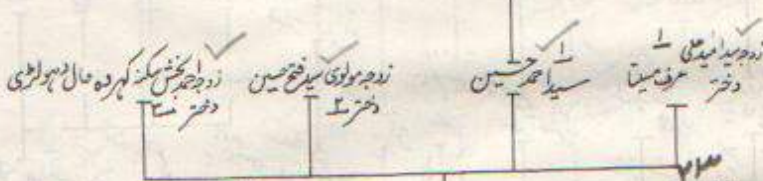 زوجہ سید امید علی
دختر ۱ عرف مسیتا
سید احمد حسین ۱
زوجہ مولوی سید فتح حسین
دختر ۲
زوجہ احمد بخش سکنہ کہردہ حال دہولڑی
دختر ۳
۷۳